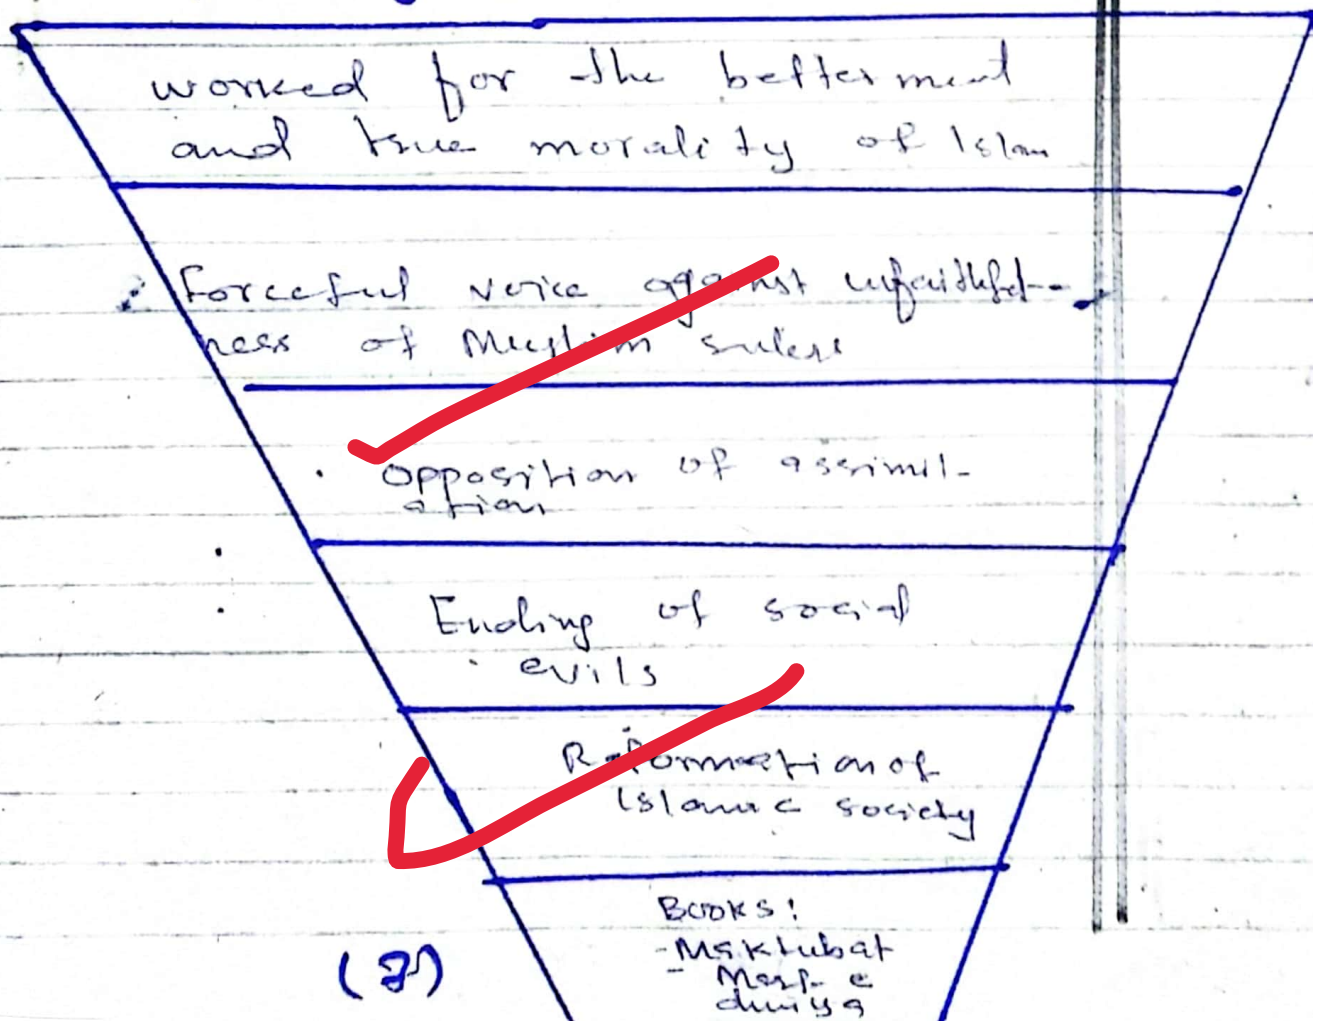 worked for the betterment
and true morality of Islam
Forceful voice against unfaithful-
ness of Muslim rulers
Opposition of assimil-
ation
Ending of social
evils
Reformation of
Islamic society
Books:
-Maktubat
- e
duniya